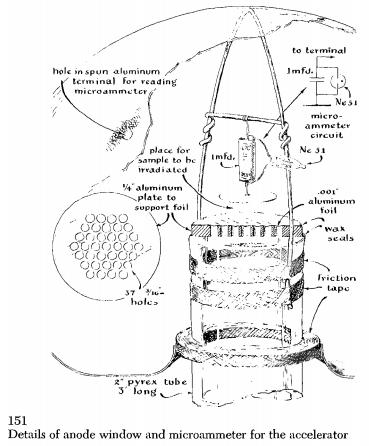 hole in spun aluminum
terminal for reading
microammeter
to terminal
1mfd.
Ne 51
micro-
ammeter
circuit
place for
sample to be
irradiated
1mfd.
Ne 51
¼" aluminum
plate to
support foil
.001"
aluminum
foil
wax
seals
37 3/16"
holes
friction
tape
2" pyrex tube
3' long
151
Details of anode window and microammeter for the accelerator